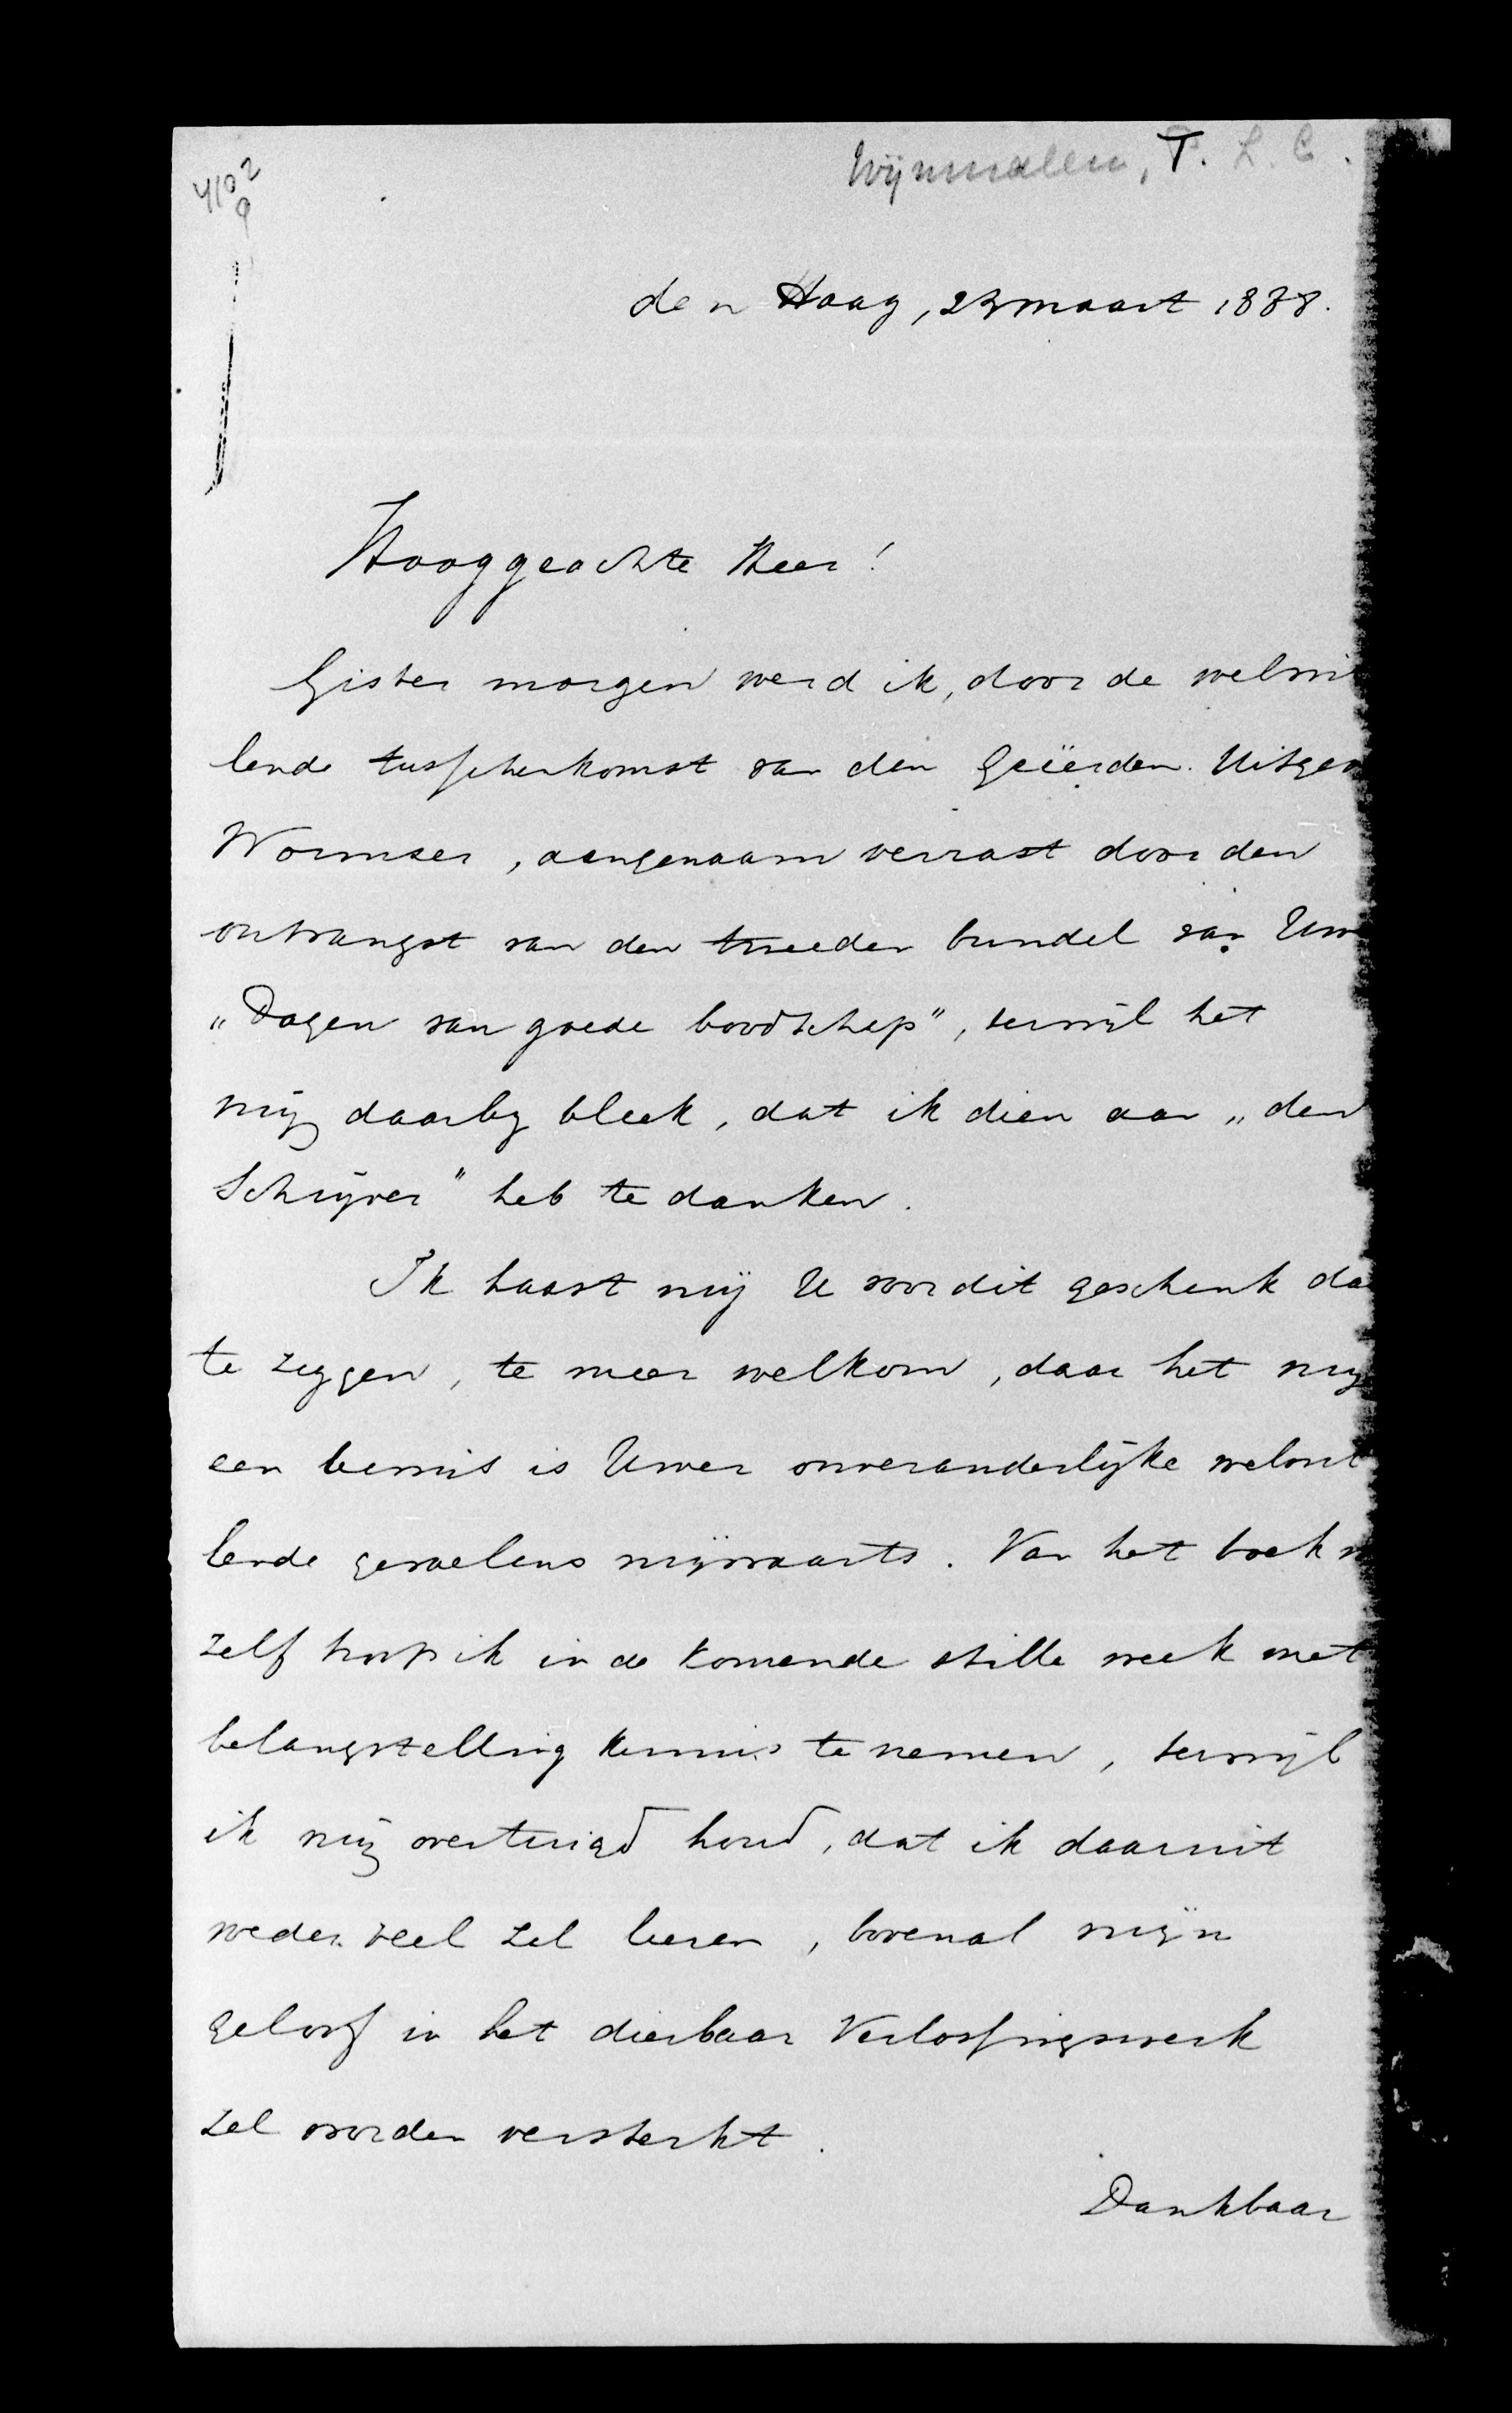 4102
9
Wijnmalen, T. L. C.
den Haag, 23 maart 1888.
Hooggeachte Heer!
Gister morgen werd ik, door de welwil
lende tusschenkomst van den Geëerden Uitgev
Wormser, aangenaam verrast door den
ontvangst van den tweeden bundel van Uw
„Dagen van goede boodschap", terwijl het
mij daarbij bleek, dat ik dien aan „den
Schrijver" heb te danken.
Ik haast mij U voor dit geschenk da
te zeggen, te meer welkom, daar het mij
een bewijs is Uwer onveranderlijke welwil
lende gevoelens mijwaarts. Van het boek
zelf hoop ik in de komende stille week met
belangstelling kennis te nemen, terwijl
ik mij overtuigd houd, dat ik daaruit
weder veel zal leeren, bovenal mijn
geloof in het dierbaar Verlossingswerk
zal worden versterkt.
Dankbaar